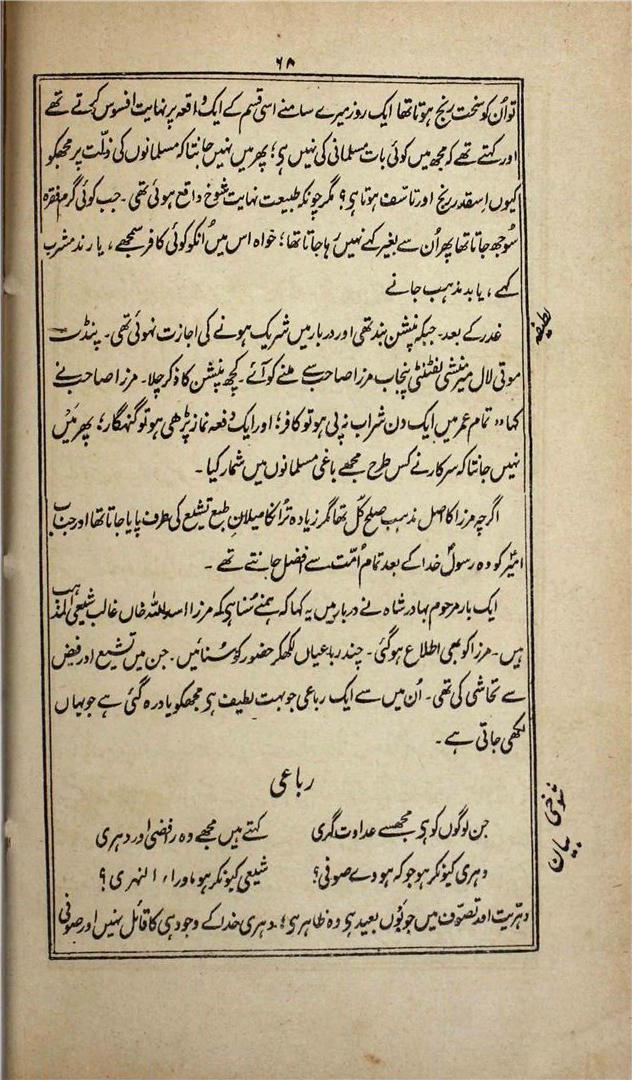 ۶۸
تو اُن کو سخت رنج ہوتا تھا ایک روز میرے سامنے اسی قسم کے ایک واقعہ پر نہایت افسوس کرتے تھے
اور کہتے تھے کہ مجھ میں کوئی بات مسلمانی کی نہیں ہی؛ پھر میں نہیں جانتا کہ مسلمانوں کی ذلّت پر مجھکو
کیوں اِسقدر رنج اور تاسّف ہوتا ہی؟ مگر چونکہ طبیعت نہایت شوخ واقع ہوئی تھی۔ جب کوئی گرم فقرہ
سُوجھ جاتا تھا پھر اُن سے بغیر کہے نہیں رہا جاتا تھا؛ خواہ اس میں اُنکو کوئی کافر سمجھے، یا رند مشرب
کہے، یا بد مذہب جانے
لطیفہ
غدر کے بعد۔ جبکہ پنشن بند تھی اور دربار میں شریک ہونے کی اجازت نہوئی تھی۔ پنڈت
موتی لال میر منشی لفٹنٹی پنجاب مرزا صاحب سے ملنے کو آئے۔ کچھ پنشن کا ذکر چلا۔ مرزا صاحب نے
کہا "تمام عمر میں ایک دن شراب نہ پی ہو تو کافر؛ اور ایک دفعہ نماز پڑھی ہو تو گنہگار؛ پھر میَں
نہیں جانتا کہ سرکار نے کس طرح مجھے باغی مسلمانوں میں شمار کیا۔
اگرچہ مرزا کا اصل مذہب صلح کُل تھا مگر زیادہ تر اُنکا میلانِ طبع تشیع کی طرف پایا جاتا تھا اور جناب
امیرؑ کو وہ رسولِ خدا کے بعد تمام اُمّت سے افضل جانتے تھے۔
ایک بار مرحوم بہادر شاہ نے دربار میں یہ کہا کہ ہمنے سُنا ہی کہ مرزا اسد اللہ خاں غالب شیعی المذہب
ہیں۔ مرزا کو بھی اطلاع ہو گئی۔ چند رباعیاں لکھکر حضور کو سُنائیں۔ جن میں تشیع اور رفض
سے تحاشی کی تھی۔ اُن میں سے ایک رباعی جو بہت لطیف ہی مجھکو یاد رہ گئی ہے جو یہاں
لکھی جاتی ہے۔
رباعی
جن لوگوں کو ہی مجھسے عداوت گہری کہتے ہیں مجھے وہ رافضی اور دہری
شوخی بیان
دہری کیونکر ہو جو کہ ہووے صوفی؟ شیعی کیونکر ہو ماوراء النہری؟
دہریت اور تصوّف میں جو بُوں بعید ہی وہ ظاہر ہی؛ دہری خدا کے وجود ہی کا قائل نہیں اور صوفی